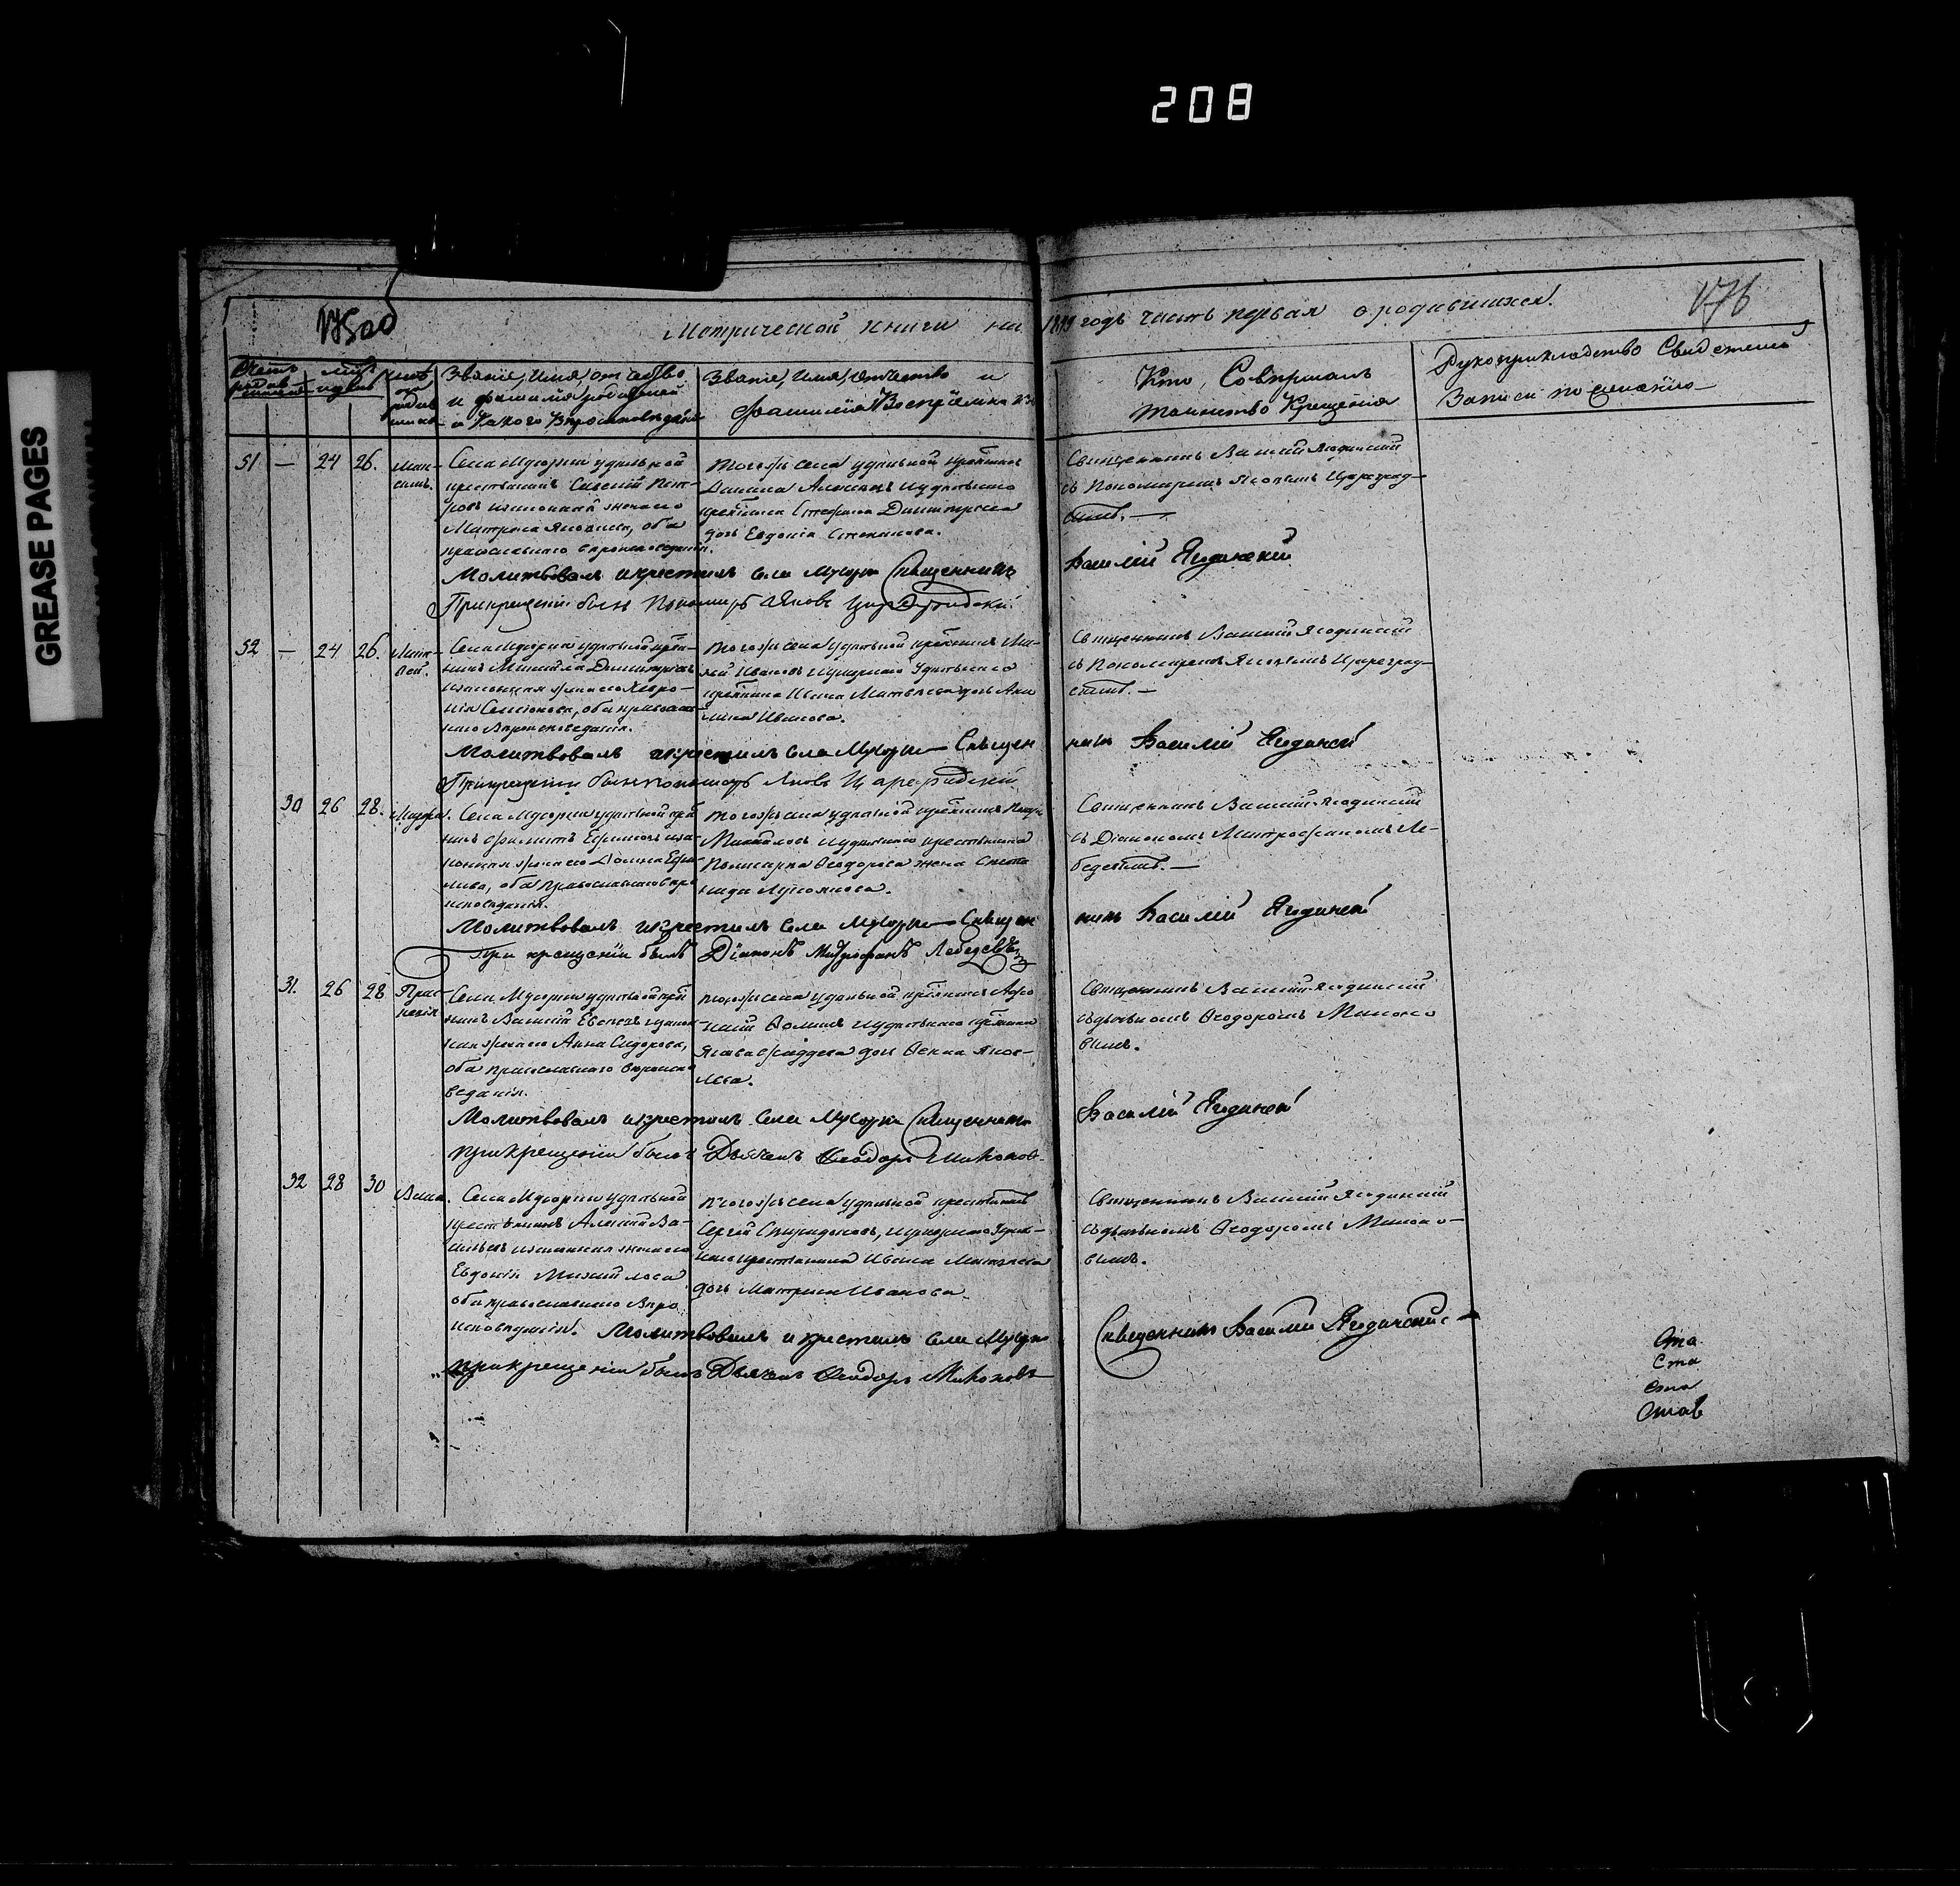 208
GREASE PAGES
175 об
Метрической книги на 1849 годъ часть первая о родившихся.
176
Званіе, имя, отчество и фамилія родителей и какого вероисповеданія
Званіе, имя, отчество и фамилія Воспріемниковъ
Кто Совершалъ таинство Крещенія
Рукоприкладство Свидетелей Записи по желанію
51 — 24 26. Мак-
симъ.
Села Мусорки удельной
крестьянинъ Савелій Пет-
ровъ и законная жена его
Матрона Яковлева, оба
православнаго вероисповеданія.
того же села удельной крестьянинъ
Данила Алексеевъ и удельнаго
крестьянина Стефана Димитріева
дочь Евдокія Степанова.
Священникъ Василій Ягодинскій
съ Пономаремъ Яковомъ Цареград-
скимъ. —
Молитвовалъ и крестилъ села Мусорки Священникъ
Василій Ягодинскій
При крещеніи былъ Пономарь Яковъ Цареградскій.
52 — 24 26.
Села Мусорки удельной кресть-
нинъ Михаила Димитріевъ
и законная жена его Хавро-
нія Семіонова, оба православ-
наго вероисповеданія.
того же села удельной крестьянинъ
Ивановъ и удельнаго
крестьянина Ивана Матвеева дочь Аки-
лина Иванова.
Священникъ Василій Ягодинскій
съ Пономаремъ Яковомъ Цареград-
скимъ. —
Молитвовалъ и крестилъ села Мусорки Священ
никъ Василій Ягодинскій
При крещеніи былъ пономарь Яковъ Цареградскій
30 26 28.
Села Мусорки удельной крестья-
нинъ Филиппъ Ефимовъ и за-
конная жена его Домна
оба православнаго веро
исповеданія.
того же села удельной крестьянинъ Петръ
Михайловъ и удельнаго крестьянина
Поликарпа Феодорова жена Степа
нида Лукьянова.
Священникъ Василій Ягодинскій
съ Діакономъ Митрофаномъ Ле-
бедевымъ. —
Молитвовалъ и крестилъ села Мусорки Священ
никъ Василій Ягодинскій
При крещеніи былъ Діаконъ Митрофанъ Лебедевъ
31. 26 28 Прас-
ковія
Села Мусорки удельной крестья
нинъ Василій и закон-
ная жена его Анна Сидорова,
оба православнаго вероиспо
веданія.
того же села удельной крестьянинъ
Фоминъ и удельнаго крестьянина
дочь Фекла Яков-
лева.
Священникъ Василій Ягодинскій
съ дьячкомъ Феодоромъ Милоно
вымъ.
Молитвовалъ и крестилъ села Мусорки Священникъ
Василій Ягодинскій
При крещеніи былъ Дьячекъ Феодоръ Милоновъ
32 28 30
Села Мусорки удельной
крестьянинъ Алексей Ва-
сильевъ и законная жена его
Евдокія Михайлова
оба православнаго веро
исповеданія.
того же села удельной крестьянинъ
Сергей Спиридоновъ, и удель-
наго крестьянина Ивана Матвеева
дочь Матрона Иванова.
Священникъ Василій Ягодинскій
съ дьячкомъ Феодоромъ Милоно-
вымъ.
Молитвовалъ и крестилъ села Мусорки
Священникъ Василій Ягодинскій
При крещеніи былъ Дьячекъ Феодоръ Милоновъ
Ста
Ста
Ста
Став